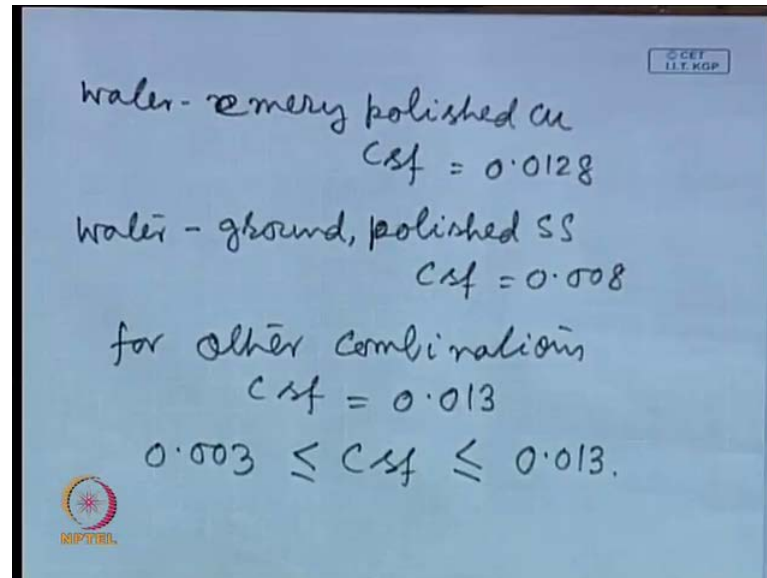 © CET
I.I.T. KGP
Water - emery polished cu
Csf = 0.0128
Water - ground, polished SS
Csf = 0.008
for other combinations
Csf = 0.013
0.003 ≤ Csf ≤ 0.013.
NPTEL